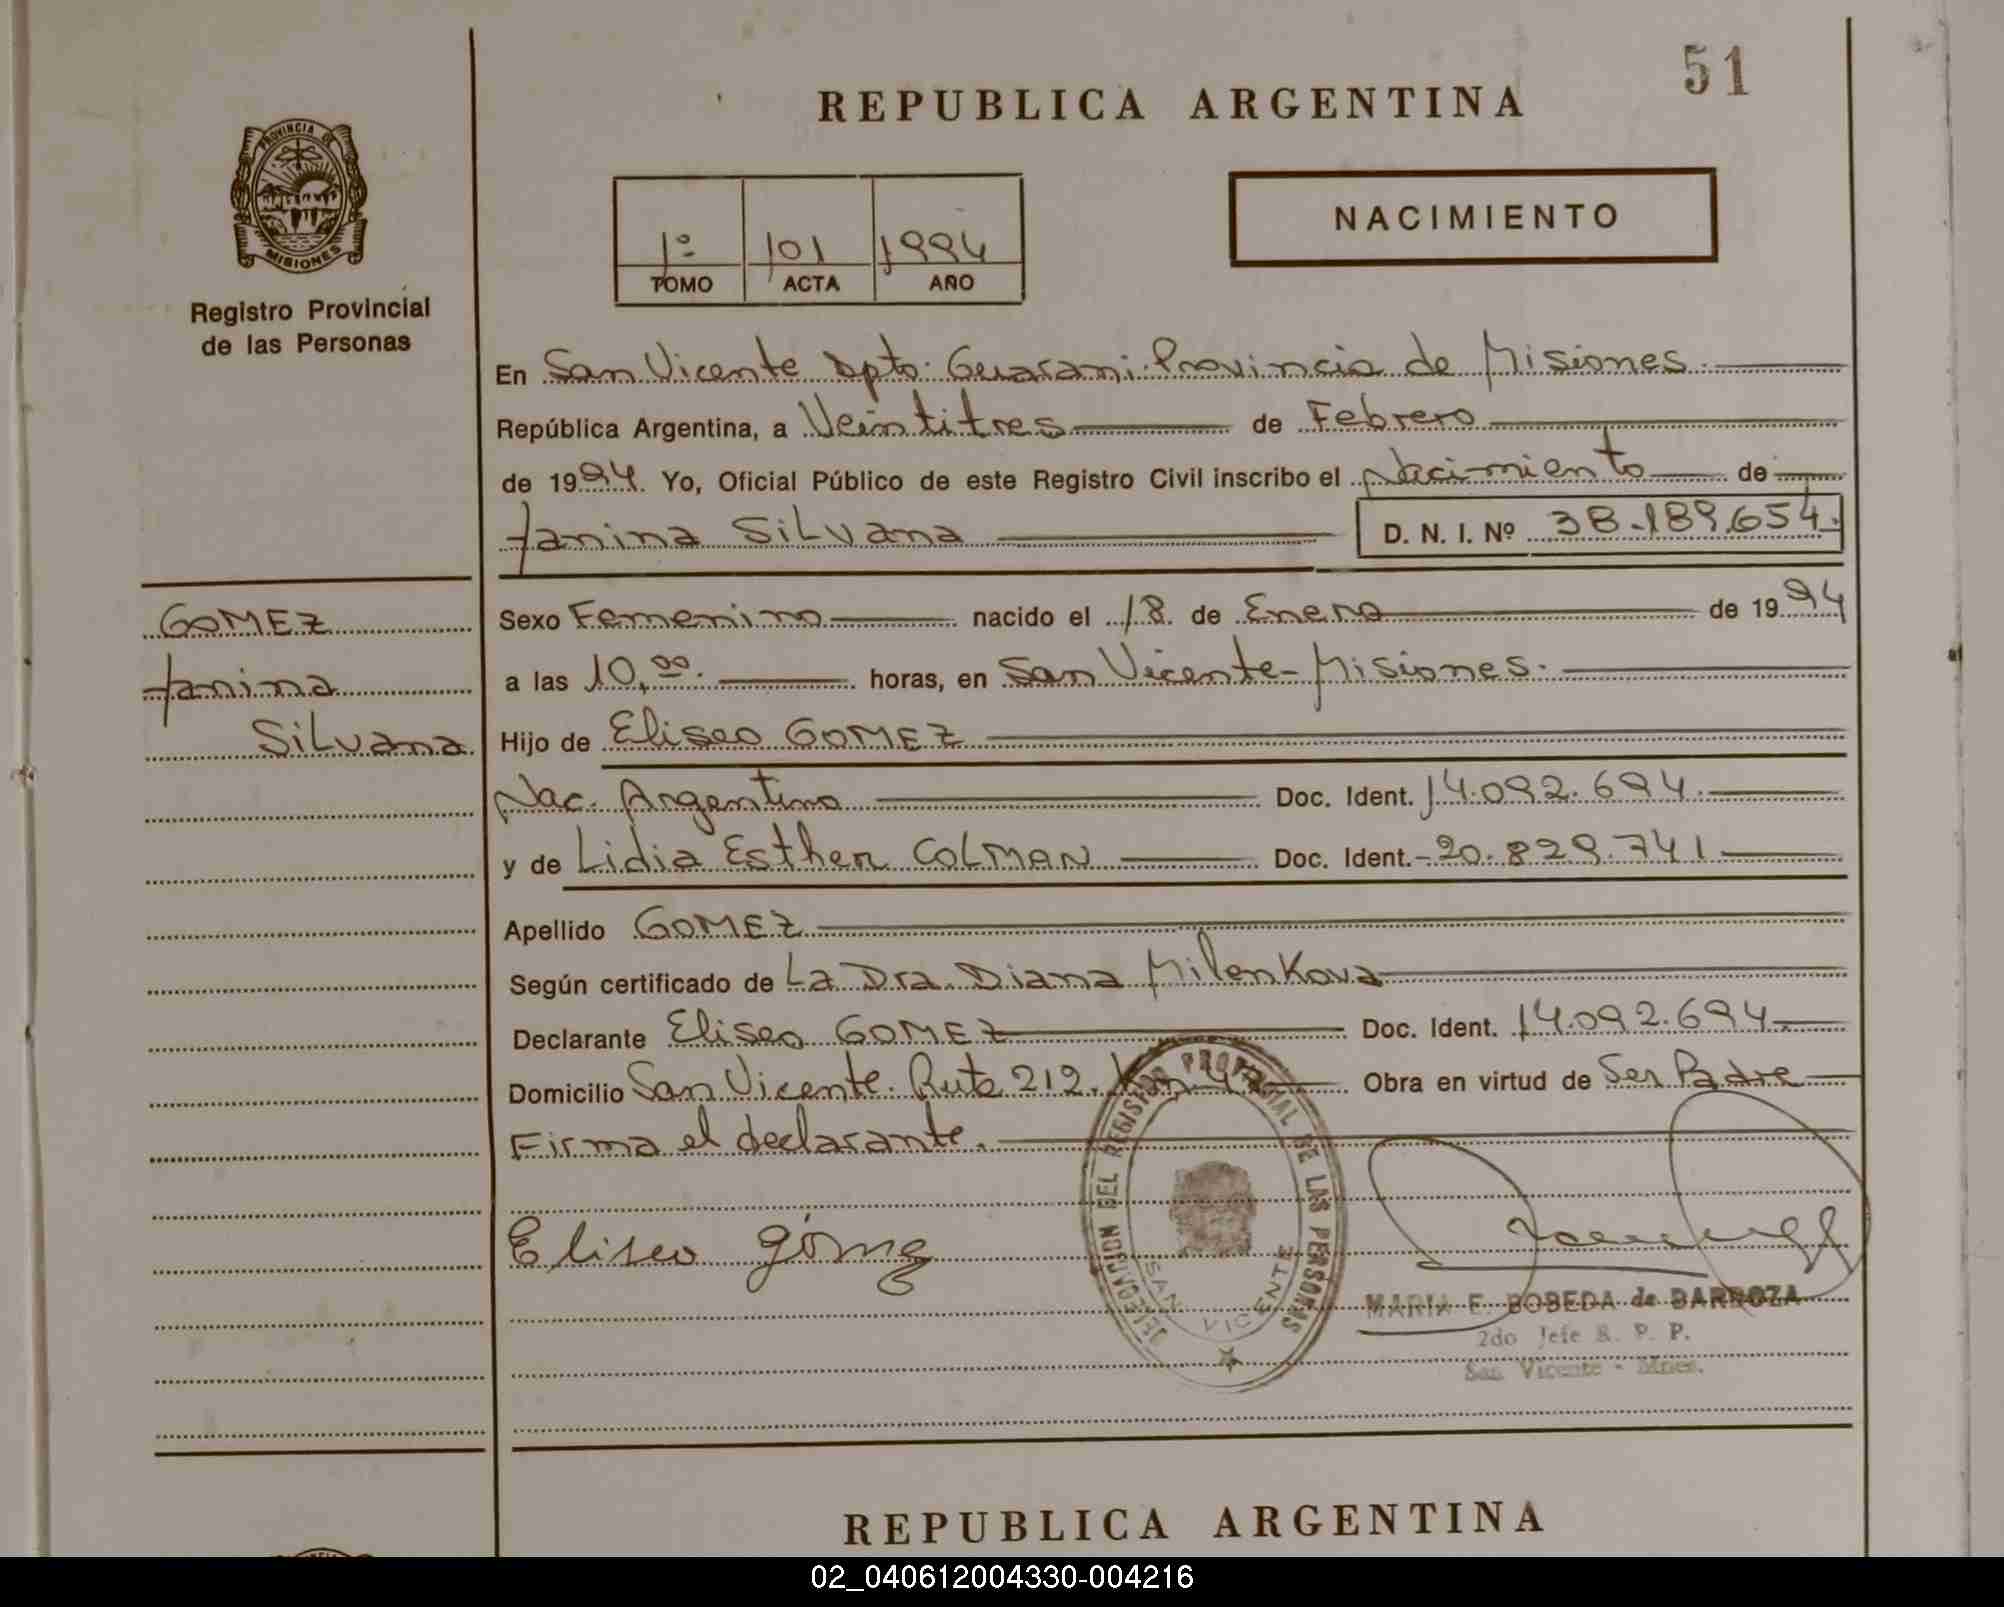 51
REPUBLICA ARGENTINA
PROVINCIA DE
MISIONES
Registro Provincial
de las Personas
NACIMIENTO
1º 101 1994
TOMO ACTA AÑO
En San Vicente Dpto. Guarani. Provincia de Misiones.
República Argentina, a Veintitres de Febrero
de 1994. Yo, Oficial Público de este Registro Civil inscribo el Nacimiento de
Janina Silvana D. N. I. Nº 38.189.654.
GOMEZ
Janina
Silvana
Sexo Femenino nacido el 18 de Enero de 1994
a las 10,00. horas, en San Vicente-Misiones.
Hijo de Eliseo GOMEZ
Nac. Argentino Doc. Ident. 14.092.694.
y de Lidia Esther COLMAN Doc. Ident.-20.829.741
Apellido GOMEZ
Según certificado de La Dra. Diana Milenkova
Declarante Eliseo GOMEZ Doc. Ident. 14.092.694
Domicilio San Vicente. Ruta 212. Km. Obra en virtud de Ser Padre
Firma el declarante.
Eliseo gómez
DELEGACION DEL REGISTRO PROVINCIAL DE LAS PERSONAS
SAN VICENTE
MARIA E. BOBEDA de BARROZA
2do Jefe R. P. P.
San Vicente - Mnes.
REPUBLICA ARGENTINA
02_040612004330-004216